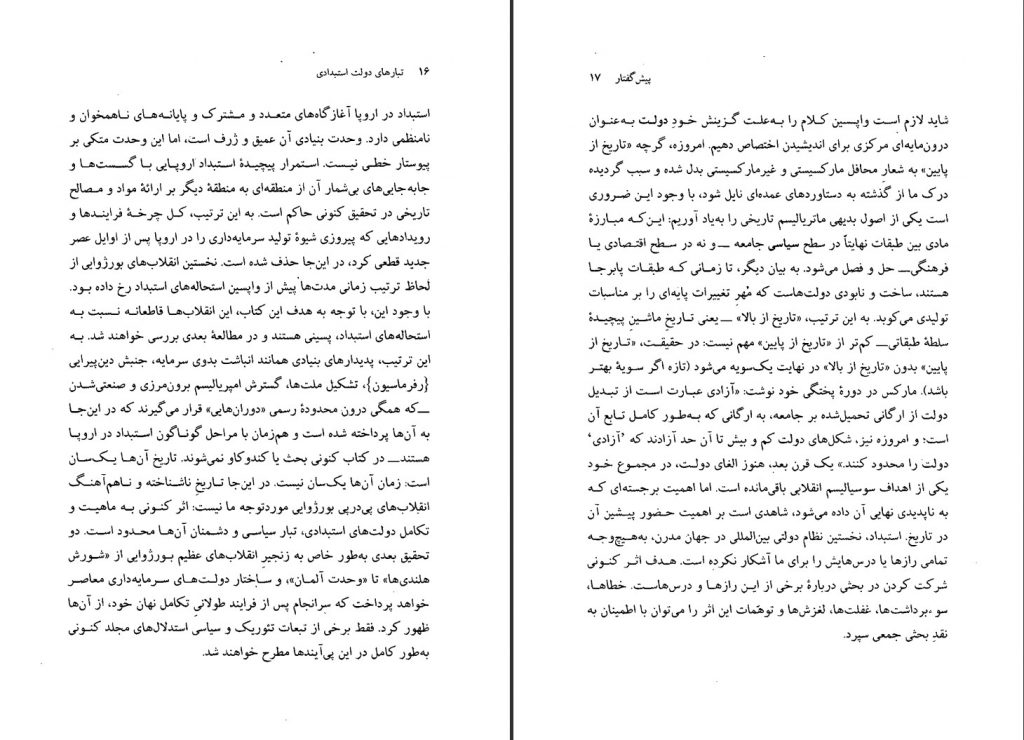 ۱۶ تبارهای دولت استبدادی
استبداد در اروپا آغازگاه‌های متعدد و مشترک و پایانه‌های ناهمخوان و
نامنظمی دارد. وحدت بنیادی آن عمیق و ژرف است، اما این وحدت متکی بر
پیوستار خطی نیست. استمرار پیچیدهٔ استبداد اروپایی با گسست‌ها و
جابه‌جایی‌های بی‌شمار آن از منطقه‌ای به منطقهٔ دیگر بر ارائهٔ مواد و مصالح
تاریخی در تحقیق کنونی حاکم است. به این ترتیب، کل چرخهٔ فرایندها و
رویدادهایی که پیروزی شیوهٔ تولید سرمایه‌داری را در اروپا پس از اوایل عصر
جدید قطعی کرد، در این‌جا حذف شده است. نخستین انقلاب‌های بورژوایی از
لحاظ ترتیب زمانی مدت‌ها پیش از واپسین استحاله‌های استبداد رخ داده بود.
با وجود این، با توجه به هدف این کتاب، این انقلاب‌ها قاطعانه نسبت به
استحاله‌های استبداد، پسینی هستند و در مطالعهٔ بعدی بررسی خواهند شد. به
این ترتیب، پدیدارهای بنیادی همانند انباشت بدوی سرمایه، جنبش دین‌پیرایی
{رفرماسیون}، تشکیل ملت‌ها، گسترش امپریالیسم برون‌مرزی و صنعتی‌شدن
ــ‌که همگی درون محدودهٔ رسمی «دوران‌هایی» قرار می‌گیرند که در این‌جا
به آن‌ها پرداخته شده است و هم‌زمان با مراحل گوناگون استبداد در اروپا
هستندــ در کتاب کنونی بحث یا کندوکاو نمی‌شوند. تاریخ آن‌ها یک‌سان
است: زمان آن‌ها یک‌سان نیست. در این‌جا تاریخِ ناشناخته و ناهم‌آهنگ
انقلاب‌های پی‌درپی بورژوایی موردتوجه ما نیست: اثر کنونی به ماهیت و
تکامل دولت‌های استبدادی، تبار سیاسی و دشمنان آن‌ها محدود است. دو
تحقیق بعدی به‌طور خاص به زنجیرِ انقلاب‌های عظیم بورژوایی از «شورش
هلندی‌ها» تا «وحدت آلمان»، و ساختار دولت‌های سرمایه‌داری معاصر
خواهد پرداخت که سرانجام پس از فرایند طولانیِ تکامل نهان خود، از آن‌ها
ظهور کرد. فقط برخی از تبعات تئوریک و سیاسی استدلال‌های مجلد کنونی
به‌طور کامل در این پی‌آیندها مطرح خواهند شد.
پیش‌گفتار ۱۷
شاید لازم است واپسین کلام را به‌علت گزینش خودِ دولت به‌عنوان
درون‌مایه‌ای مرکزی برای اندیشیدن اختصاص دهیم. امروزه، گرچه «تاریخ از
پایین» به شعار محافل مارکسیستی و غیرمارکسیستی بدل شده و سبب گردیده
درک ما از گذشته به دستاوردهای عمده‌ای نایل شود، با وجود این ضروری
است یکی از اصول بدیهی ماتریالیسم تاریخی را به‌یاد آوریم: این‌که مبارزهٔ
مادی بین طبقات نهایتاً در سطح سیاسی جامعه ــ‌و نه در سطح اقتصادی یا
فرهنگی‌ــ حل و فصل می‌شود. به بیان دیگر، تا زمانی که طبقات پابرجا
هستند، ساخت و نابودی دولت‌هاست که مُهرِ تغییرات پایه‌ای را بر مناسبات
تولیدی می‌کوبد. به این ترتیب، «تاریخ از بالا» ــ‌یعنی تاریخِ ماشینِ پیچیدهٔ
سلطهٔ طبقاتی‌ــ کم‌تر از «تاریخ از پایین» مهم نیست: در حقیقت، «تاریخ از
پایین» بدون «تاریخ از بالا» در نهایت یک‌سویه می‌شود (تازه اگر سویهٔ بهتر
باشد). مارکس در دورهٔ پختگی خود نوشت: «آزادی عبارت است از تبدیل
دولت از ارگانی تحمیل‌شده بر جامعه، به ارگانی که به‌طور کامل تابع آن
است؛ و امروزه نیز، شکل‌های دولت کم و بیش تا آن حد آزادند که ‘آزادی’
دولت را محدود کنند.» یک قرن بعد، هنوز الغای دولت، در مجموع خود
یکی از اهداف سوسیالیسم انقلابی باقی‌مانده است. اما اهمیت برجسته‌ای که
به ناپدیدی نهایی آن داده می‌شود، شاهدی است بر اهمیت حضور پیشین آن
در تاریخ. استبداد، نخستین نظام دولتی بین‌المللی در جهان مدرن، به‌هیچ‌وجه
تمامی رازها یا درس‌هایش را برای ما آشکار نکرده است. هدف اثر کنونی
شرکت کردن در بحثی دربارهٔ برخی از این رازها و درس‌هاست. خطاها،
سوءبرداشت‌ها، غفلت‌ها، لغزش‌ها و توهّمات این اثر را می‌توان با اطمینان به
نقدِ بحثی جمعی سپرد.